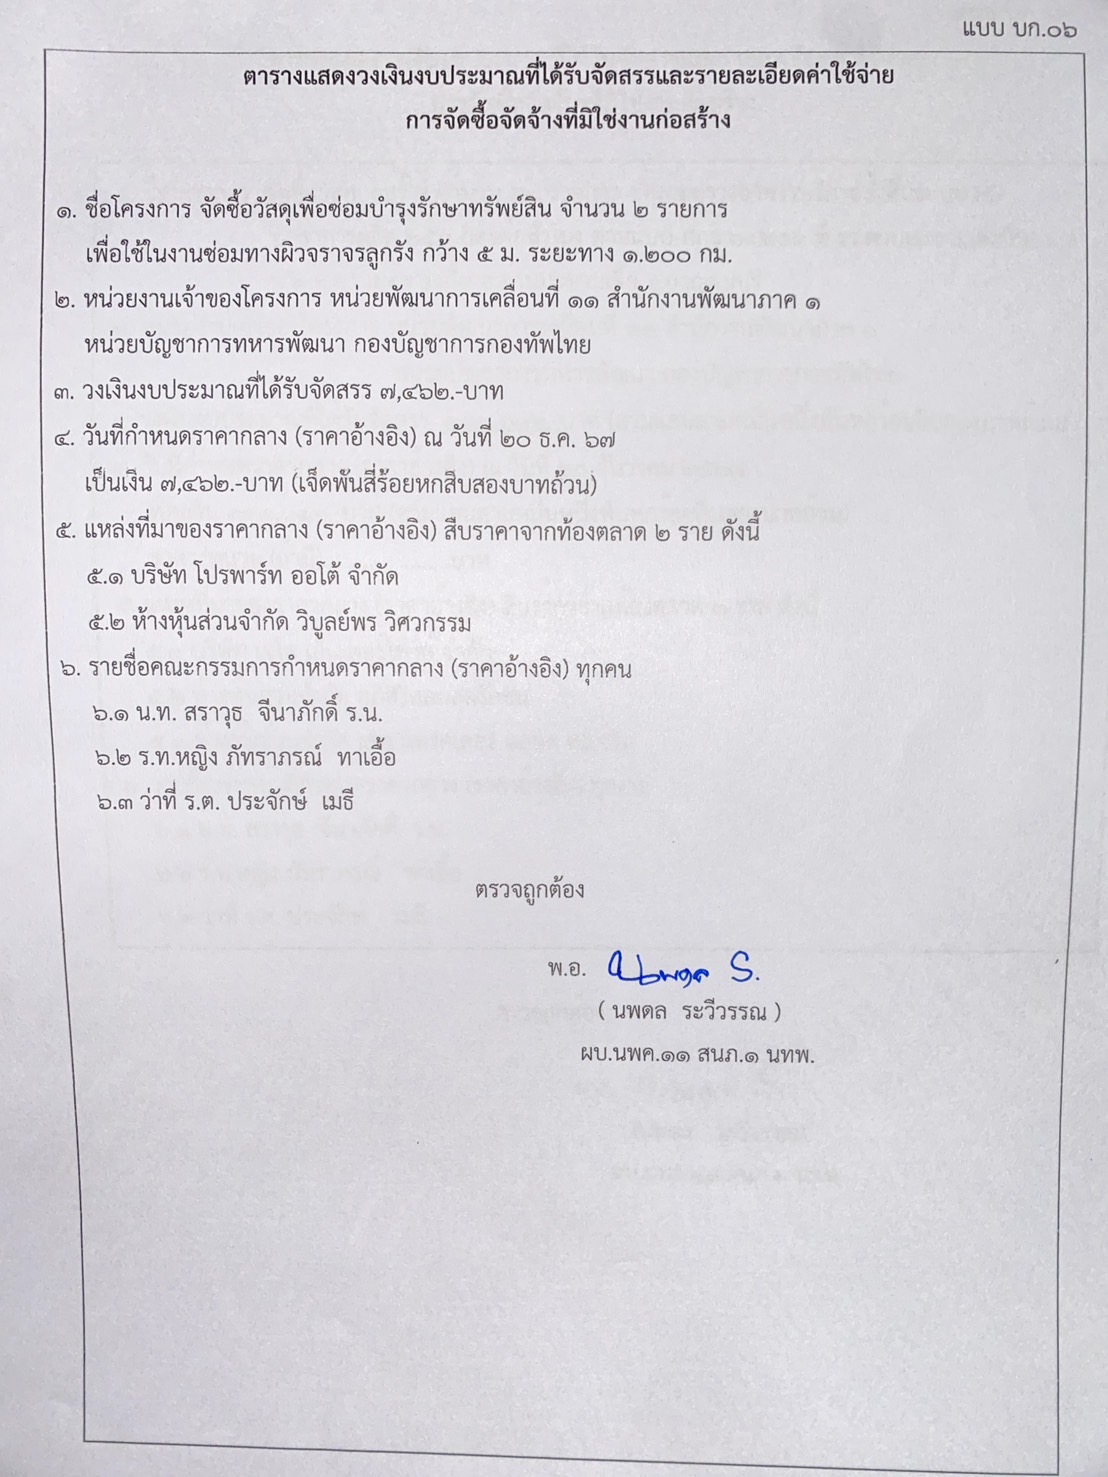 แบบ บก.๐๖
ตารางแสดงวงเงินงบประมาณที่ได้รับจัดสรรและรายละเอียดค่าใช้จ่าย
การจัดซื้อจัดจ้างที่มิใช่งานก่อสร้าง
๑. ชื่อโครงการ จัดซื้อวัสดุเพื่อซ่อมบำรุงรักษาทรัพย์สิน จำนวน ๒ รายการ
เพื่อใช้ในงานซ่อมทางผิวจราจรลูกรัง กว้าง ๕ ม. ระยะทาง ๑.๒๐๐ กม.
๒. หน่วยงานเจ้าของโครงการ หน่วยพัฒนาการเคลื่อนที่ ๑๑ สำนักงานพัฒนาภาค ๑
หน่วยบัญชาการทหารพัฒนา กองบัญชาการกองทัพไทย
๓. วงเงินงบประมาณที่ได้รับจัดสรร ๗,๔๖๒.-บาท
๔. วันที่กำหนดราคากลาง (ราคาอ้างอิง) ณ วันที่ ๒๐ ธ.ค. ๖๗
เป็นเงิน ๗,๔๖๒.-บาท (เจ็ดพันสี่ร้อยหกสิบสองบาทถ้วน)
๕. แหล่งที่มาของราคากลาง (ราคาอ้างอิง) สืบราคาจากท้องตลาด ๒ ราย ดังนี้
๕.๑ บริษัท โปรพาร์ท ออโต้ จำกัด
๕.๒ ห้างหุ้นส่วนจำกัด วิบูลย์พร วิศวกรรม
๖. รายชื่อคณะกรรมการกำหนดราคากลาง (ราคาอ้างอิง) ทุกคน
๖.๑ น.ท. สราวุธ จีนาภักดิ์ ร.น.
๖.๒ ร.ท.หญิง ภัทราภรณ์ ทาเอื้อ
๖.๓ ว่าที่ ร.ต. ประจักษ์ เมธี
ตรวจถูกต้อง
พ.อ. นพดล S.
( นพดล ระวีวรรณ )
ผบ.นพค.๑๑ สนภ.๑ นทพ.